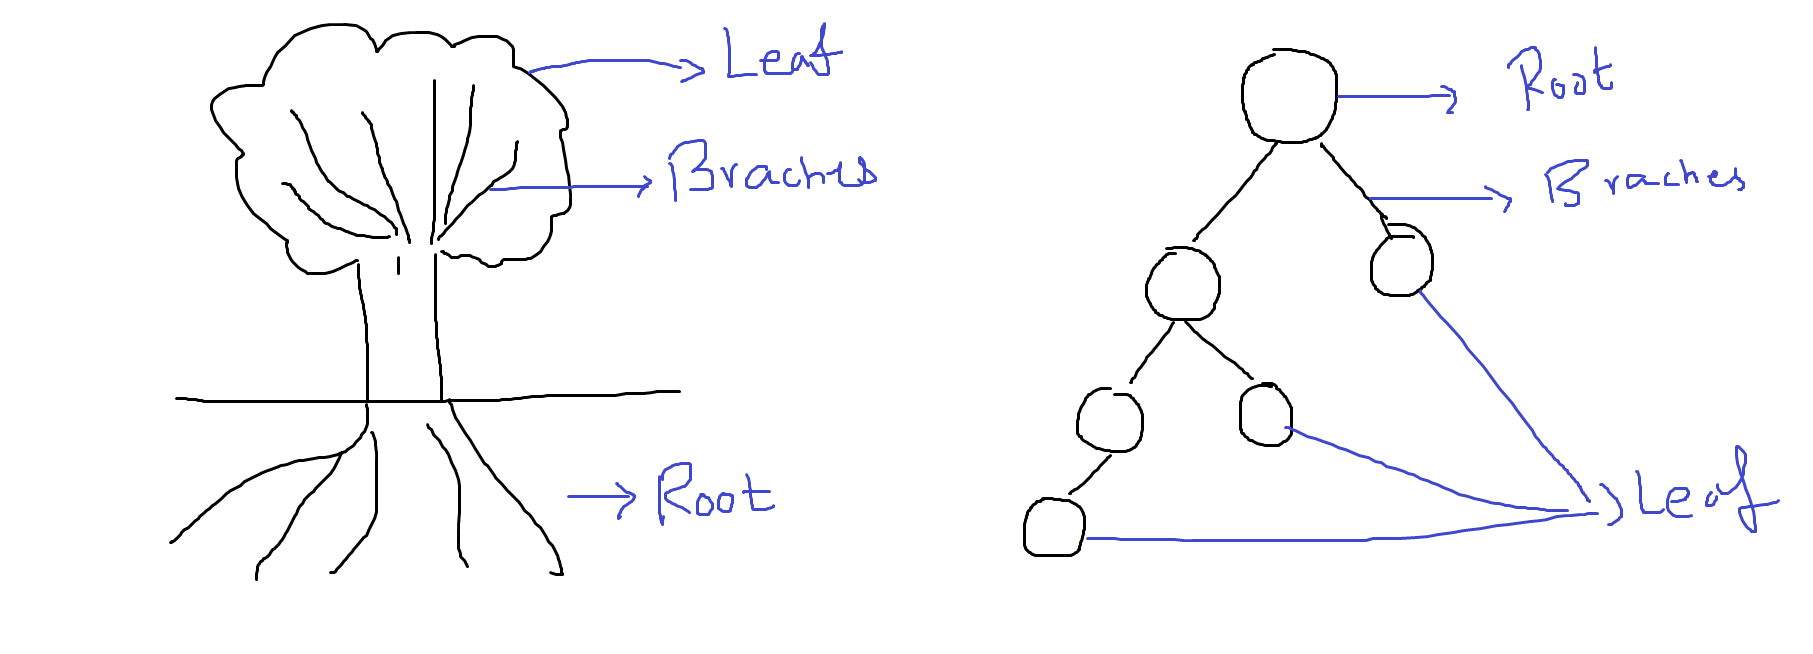 Leaf
Braches
Root
Root
Braches
Leaf